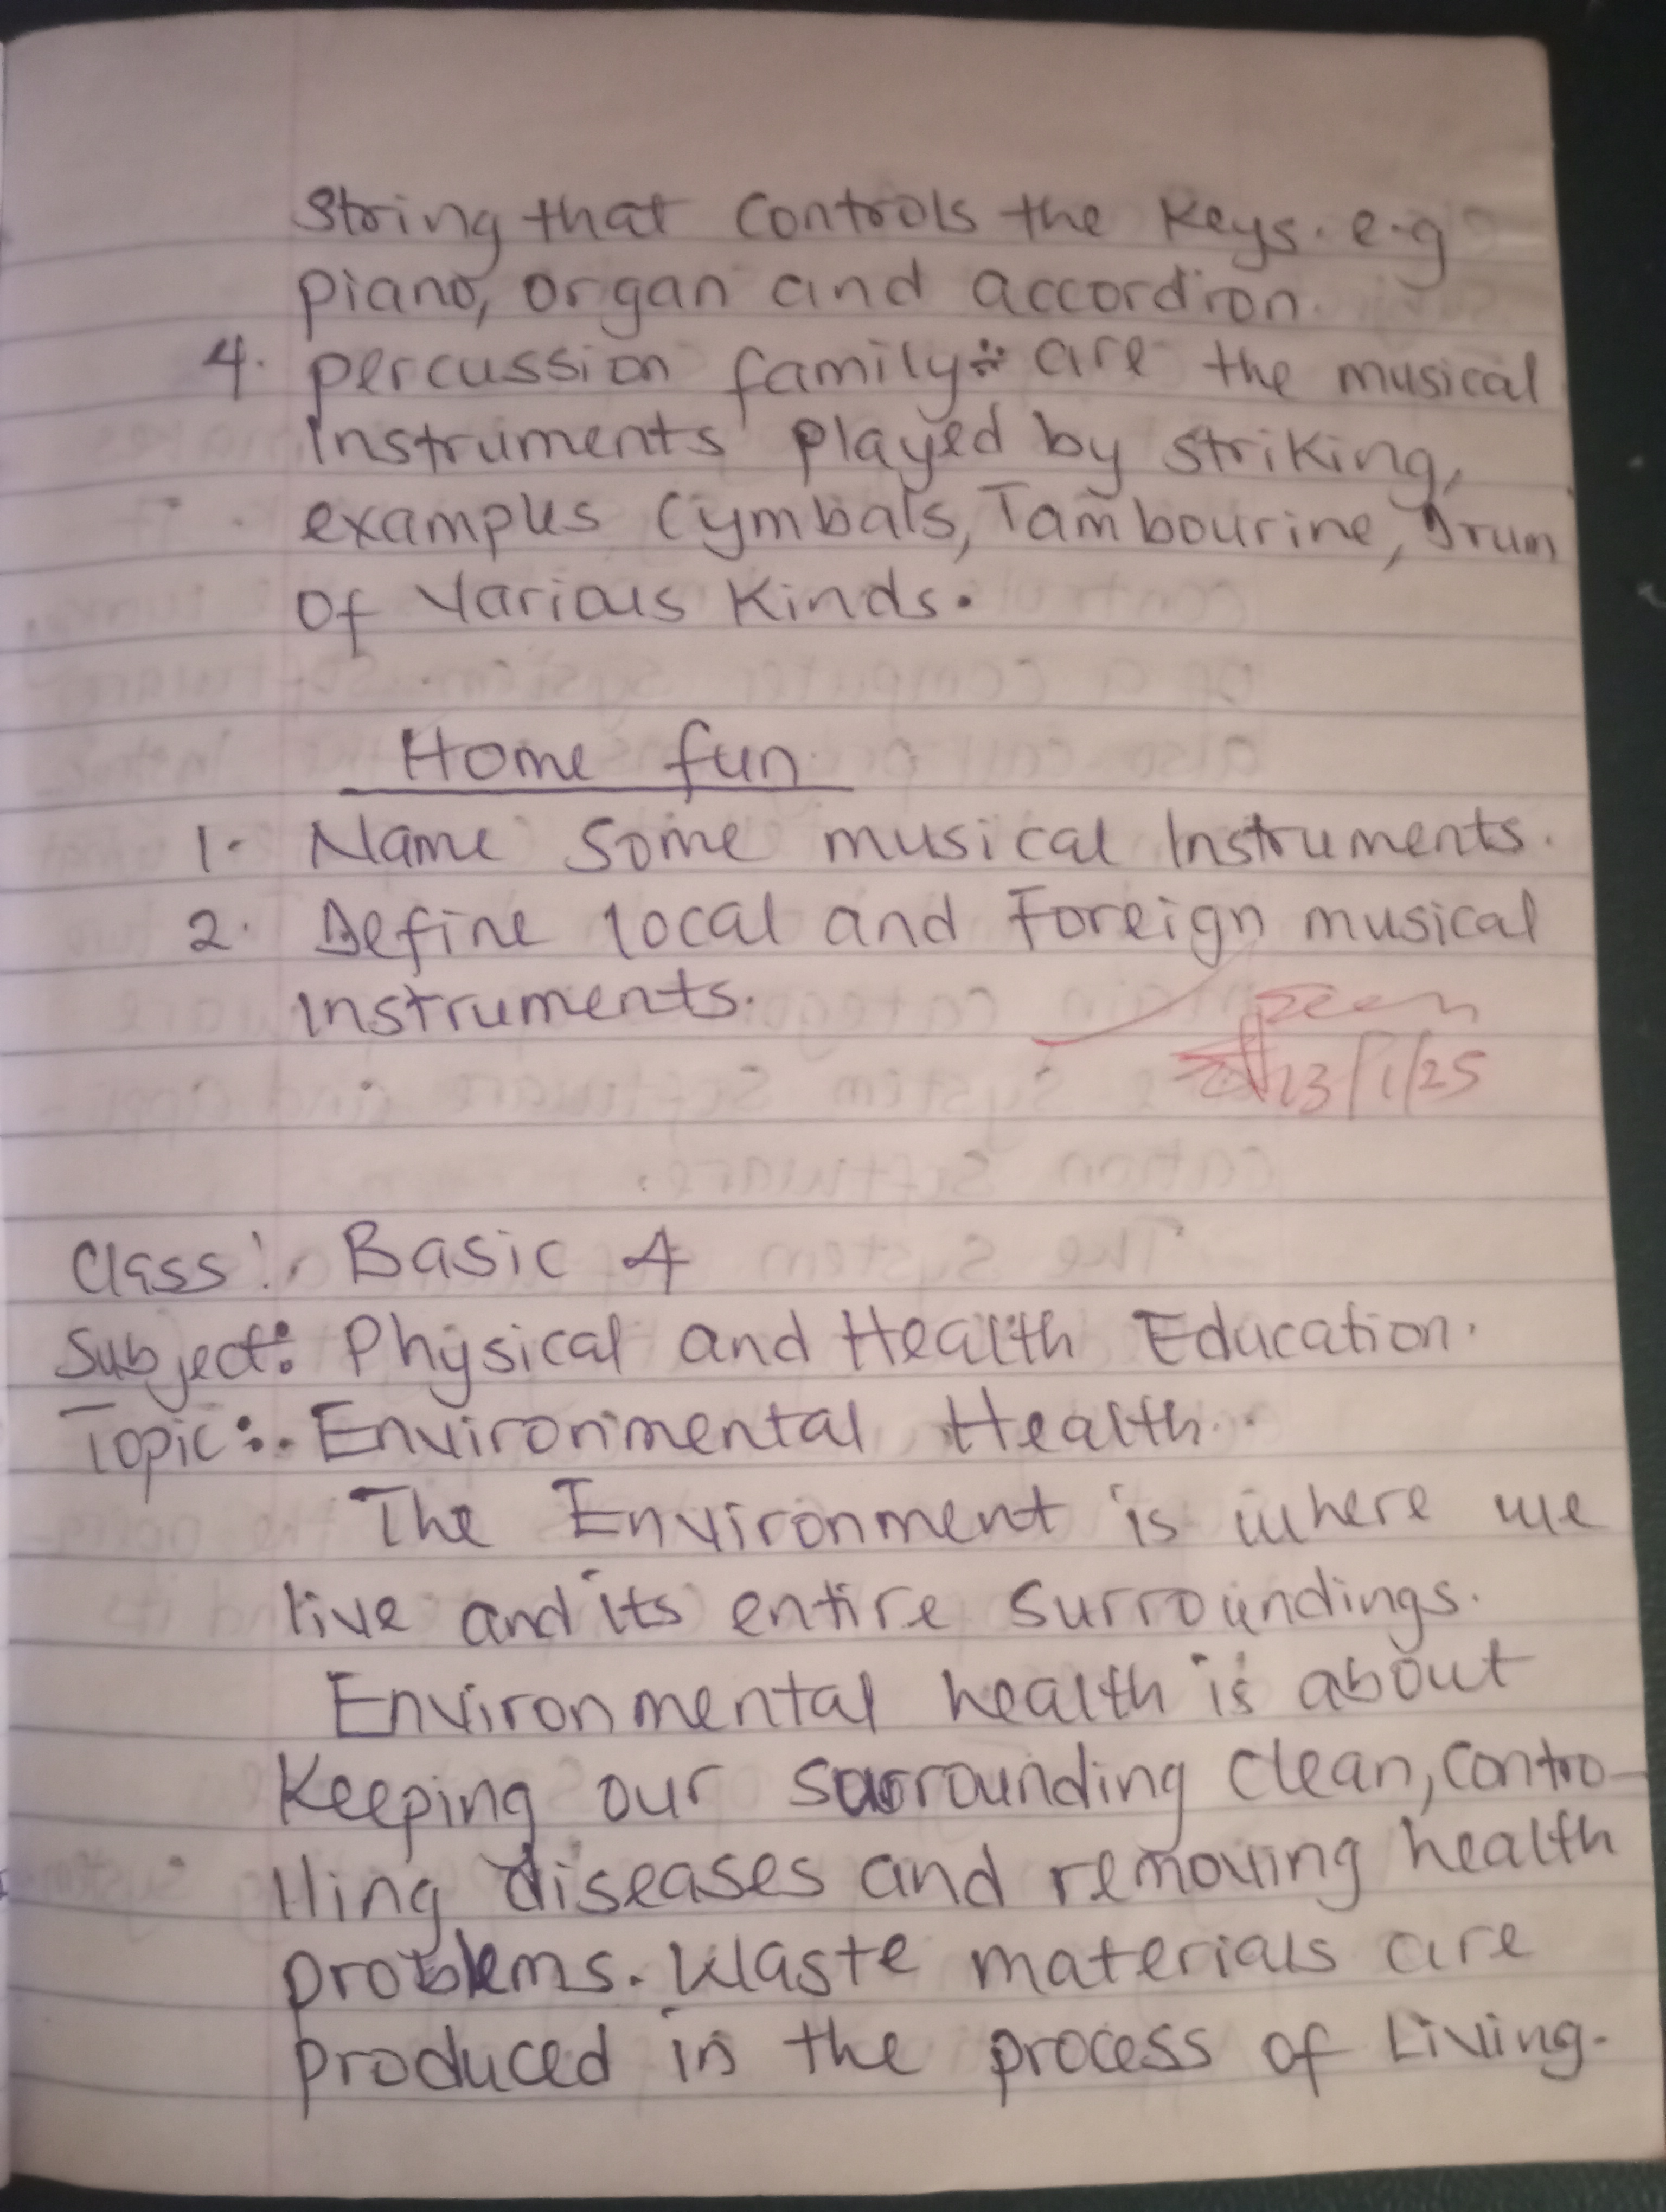 String that controls the Keys. e.g
piano, organ and accordion.
4. percussion family:- are the musical
instruments played by striking,
examples Cymbals, Tambourine, Drum
of various kinds.
Home fun
1. Name some musical Instruments.
2. Define local and Foreign musical
instruments.
Seen
13/1/25
Class:. Basic 4
Subject: Physical and Health Education.
Topic:. Environmental Health.
The Environment is where we
live and its entire surroundings.
Environmental health is about
Keeping our surrounding clean, contro-
lling diseases and removing health
problems. Waste materials are
produced in the process of Living.